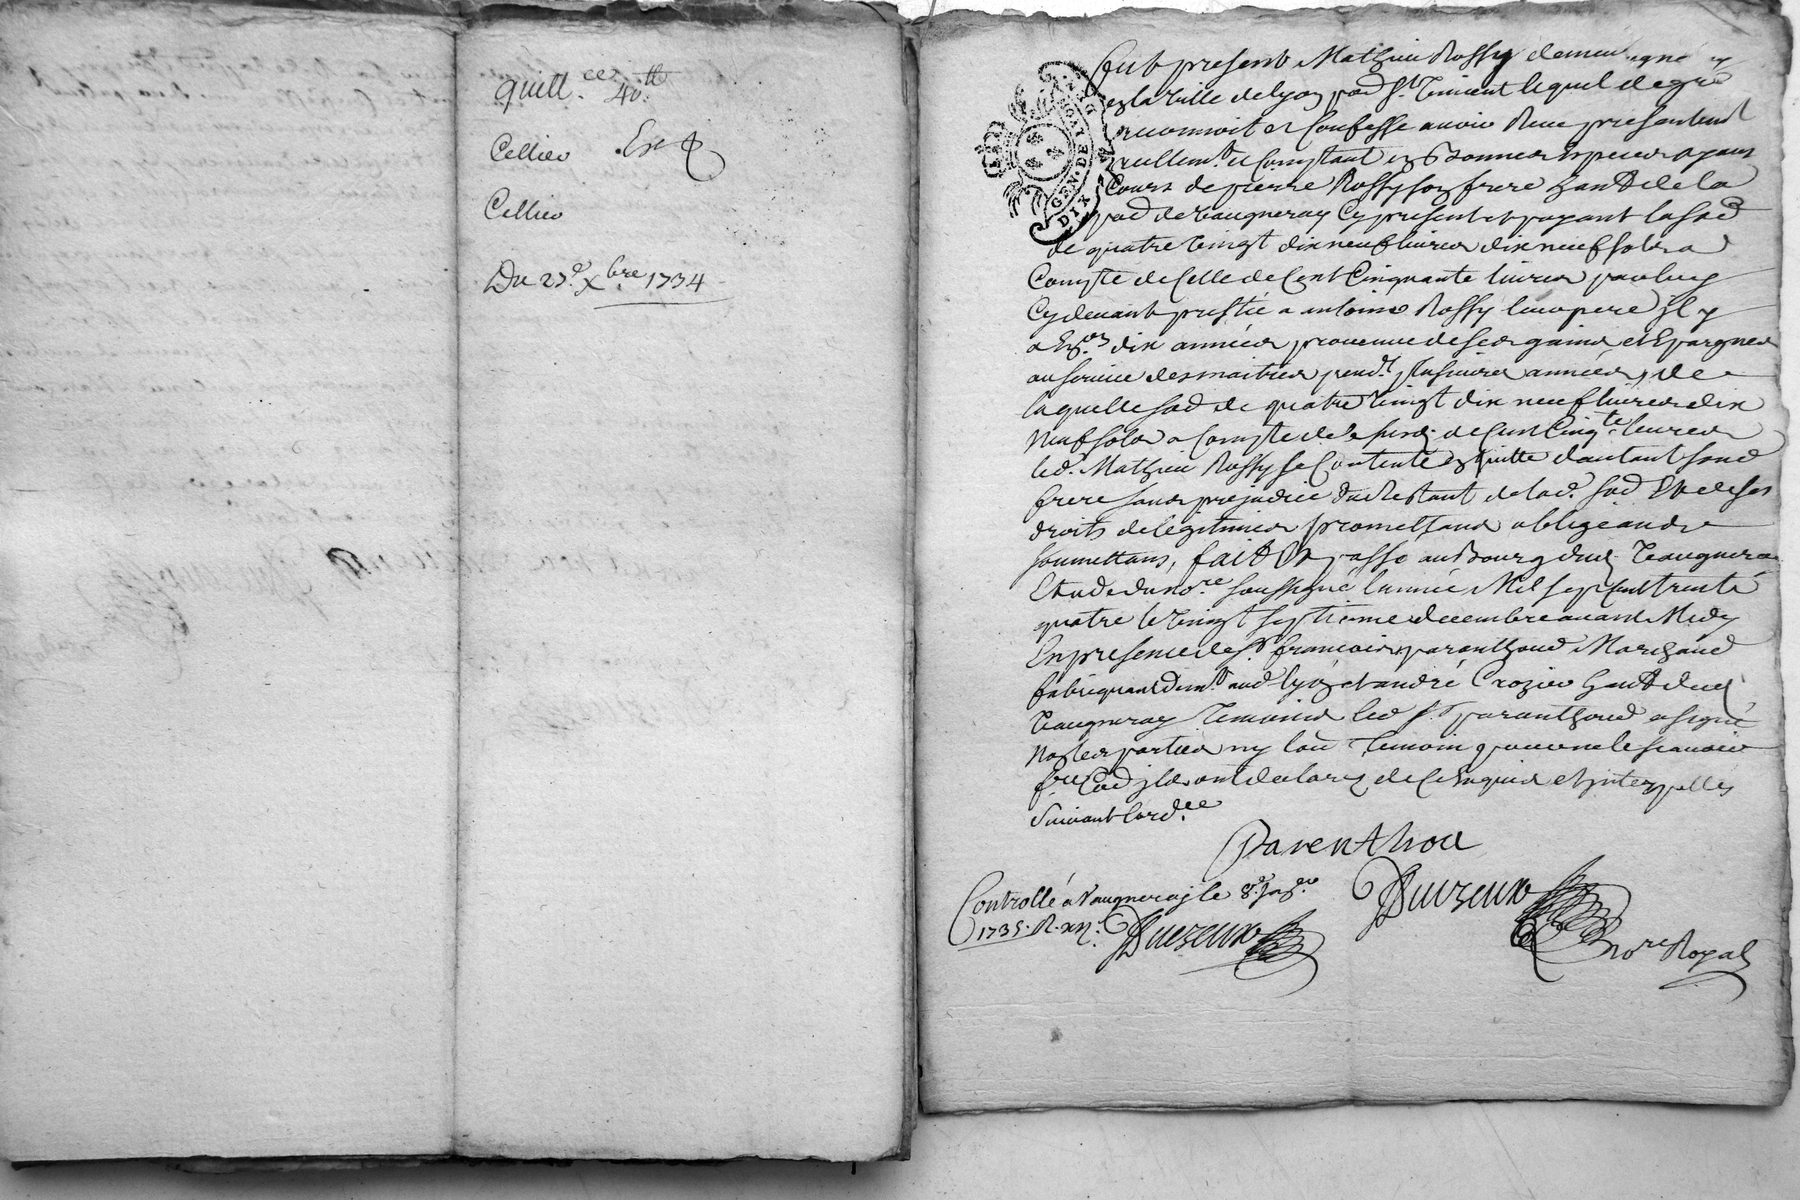 quitt.ce 40.tt
Cellier Ex
Cellier
Du 23.e Xbre 1734
GEN. DE LYON
DIX
fut present Mathieu Roffy demeu
en la ville de Lyon pad St. Vincent lequel de gré
reconnoit et confesse avoir Receu presentemt
reellemt. et Comptant en Bonnes Especes ayans
Cours de pierre Roffy son frere hantt de la
pad de Vaugneray Cy present et payant la sad
de quatre vingt dix neuf livres dix neuf sols a
Compte de Celle de Cent Cinquante livres par luy
Cydevant prestée a antoine Roffy leur pere il y
a dix années provenue de ses gains et Epargnes
au service des maitres pendt plusieurs années, de
laquelle sad de quatre vingt dix neuf livres dix
neuf sols a Compte de de Cent Cinqte livres
led. Mathieu Roffy se Contente en quitte d'autant sond
frere sans prejudice du Restant de lad. sad Et de ses
droits de legitimes promettans obligeans
soumettans, fait Et passé au Bourg dud. Vaugneray
Etude du nore soussigné l'année Mil sept cent trente
quatre le vingt septieme decembre avant Midy
En presence de sr francois paranthoud Marchand
fabriquant aud Lyon et andré Crozier hantt dud
Vaugneray Temoins led sr paranthoud a signé
non les parties ny l'au Temoin pour ne le scavoir
ils ont declarez de Ce Enquis et interpellés
Suivant l'ord.ce
Parenthou
Controllé a Vaugneray le 8.e janer
1735. R. xij s. Duczeux
Duczeux
nore Royal